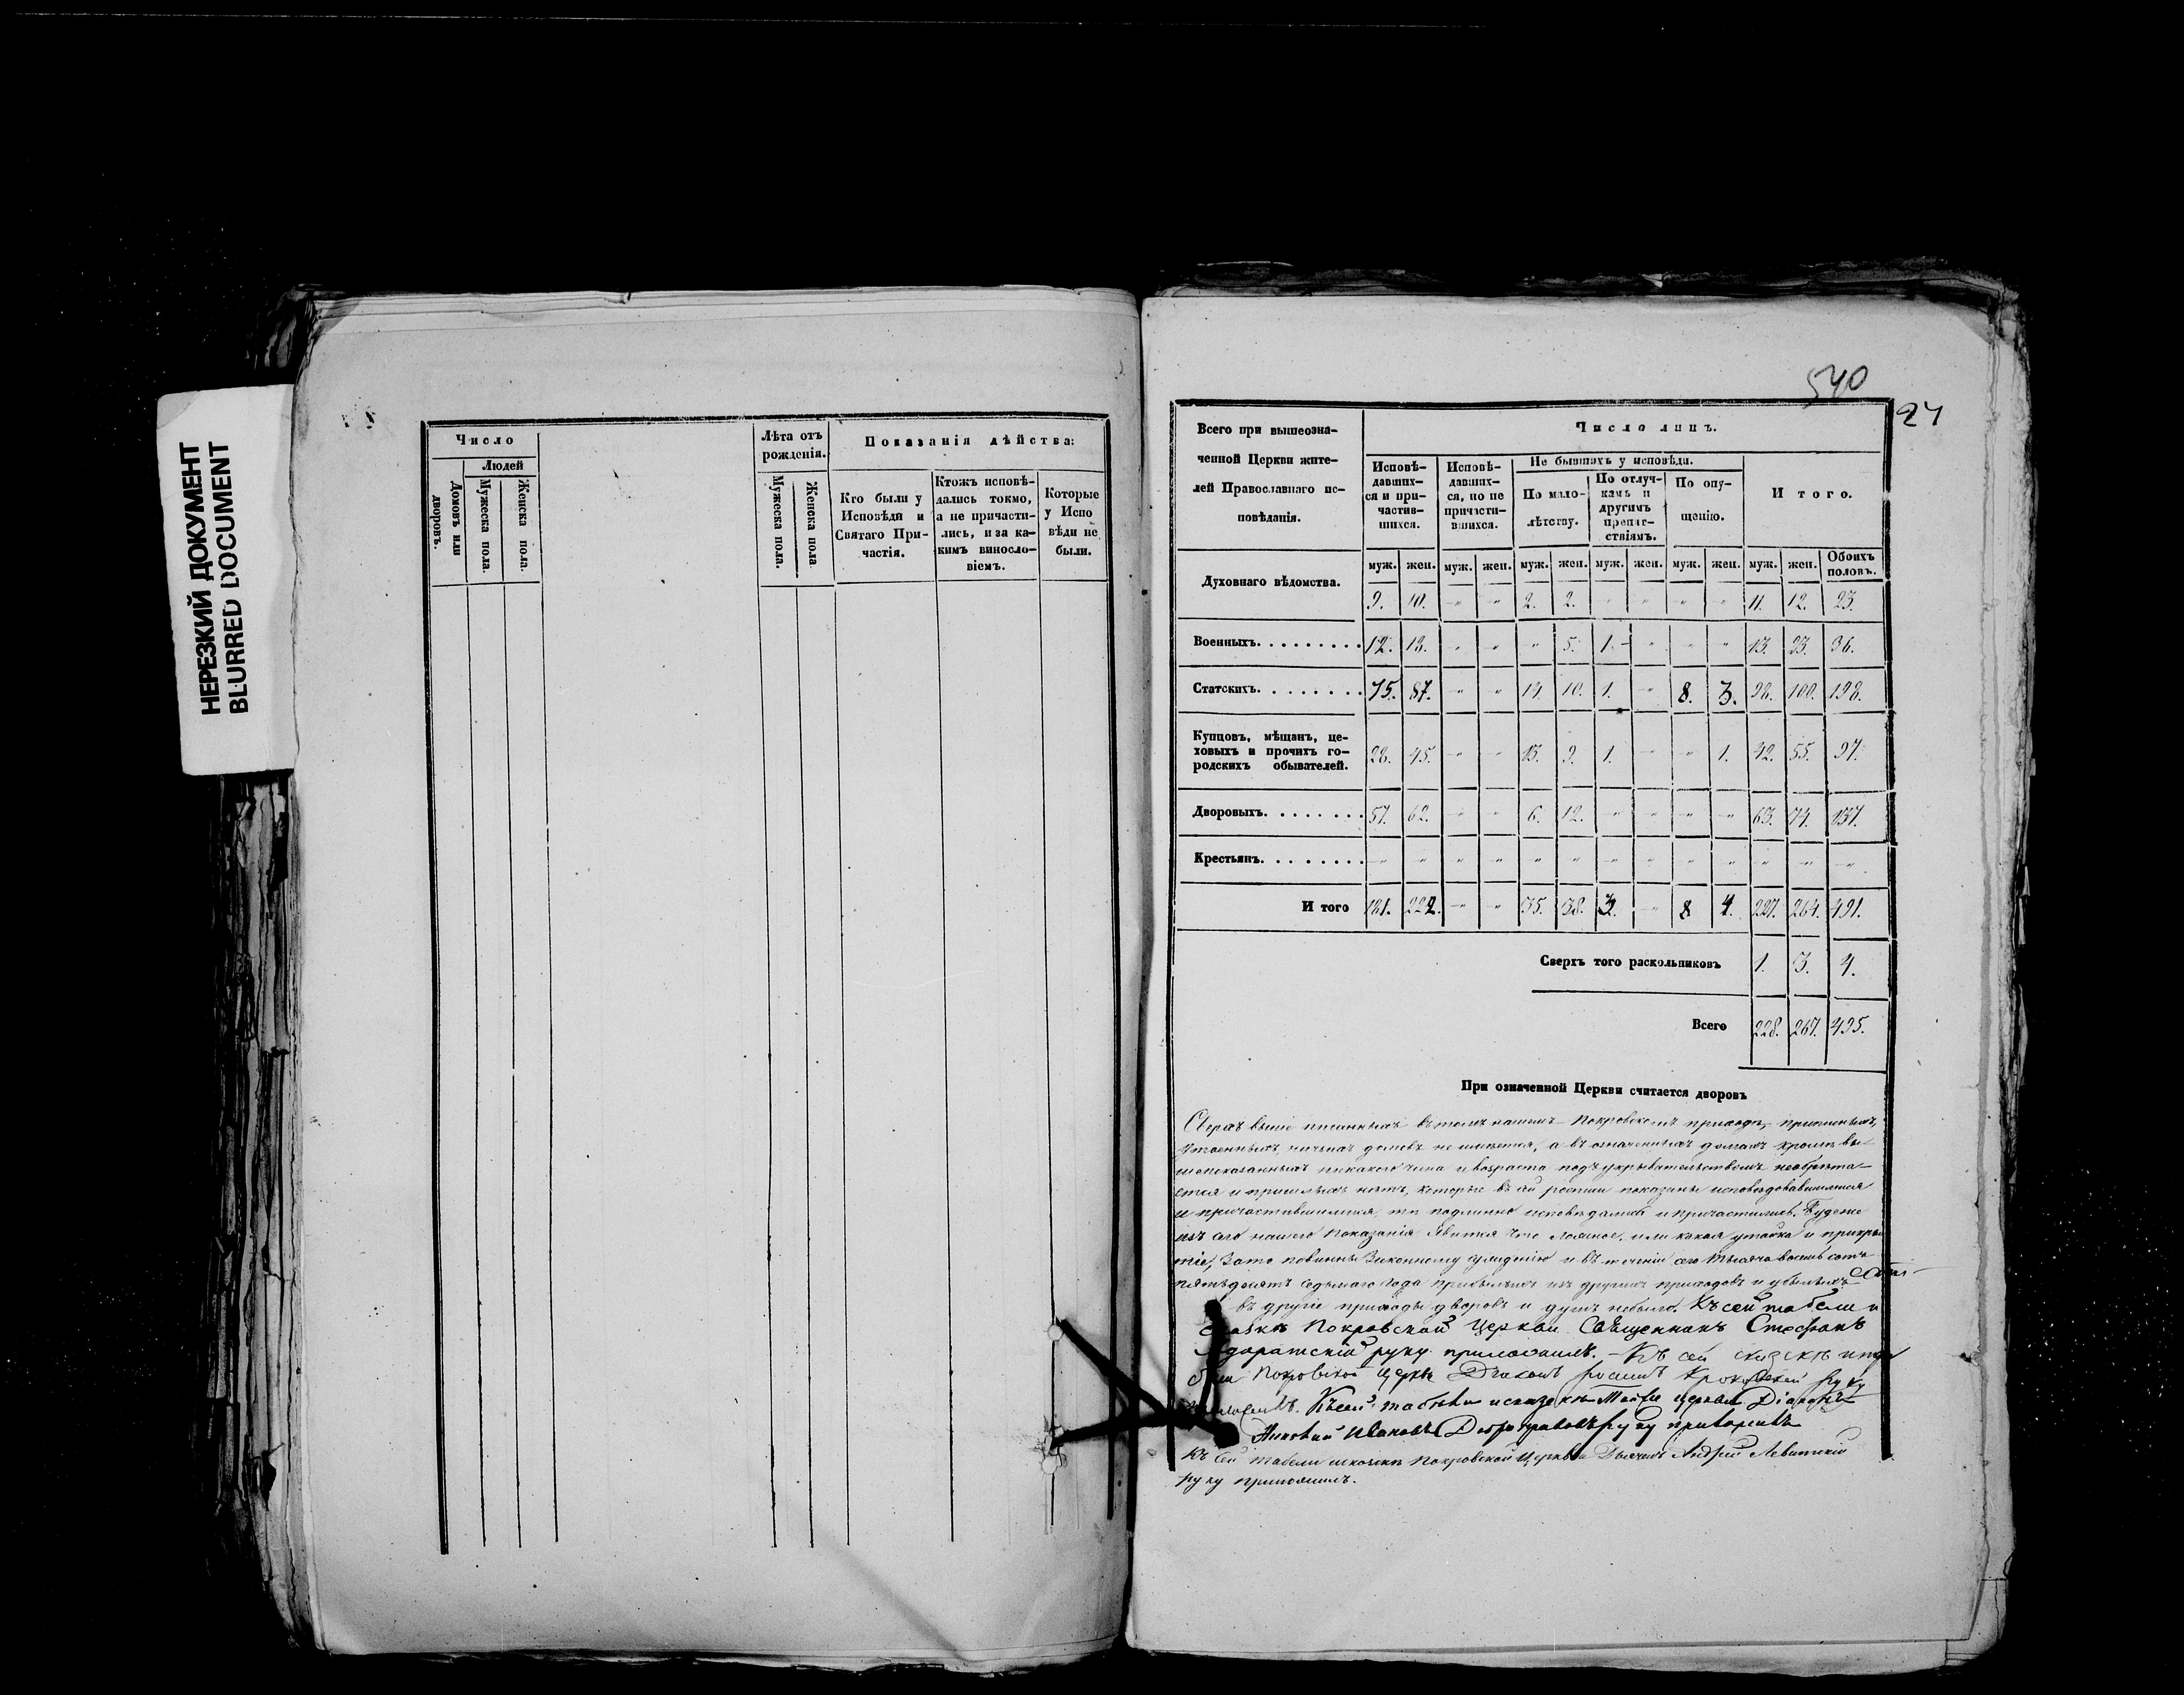 НЕРЕЗКИЙ ДОКУМЕНТ
BLURRED DOCUMENT
Число
Людей
Домовъ или дворовъ.
Мужеска пола.
Женска пола.
Лѣта отъ рожденія.
Мужеска пола.
Женска пола
Показанія дѣйства:
Кто были у Исповѣди и Святаго При-
частія.
Ктожъ исповѣ-
дались токмо,
а не причасти-
лись, и за ка-
кимъ виносло-
віемъ.
Которые
у Испо
вѣди не
были.
540
27
Всего при вышеозна-
ченной Церкви жите-
лей Православнаго ис-
повѣданія.
Число лицъ.
Исповѣ-
давших-
ся и при-
частив-
шихся.
Исповѣ-
давших-
ся, но не
причасти-
вшихся.
Не бывшихъ у исповѣди.
По мало-
лѣтству.
По отлуч-
камъ и
другимъ
препят-
ствіямъ.
По опу-
щенію.
Итого.
муж. жен. муж. жен. муж. жен. муж. жен. муж. жен. муж. жен. Обоихъ половъ.
Духовнаго вѣдомства. 9. 10. " " 2. 2. " " " " 11. 12. 23.
Военныхъ. 12. 18. " " " 5. 1. " " " 13. 23. 36.
Статскихъ. 75. 87. " " 14. 10. 1. " 8. 3. 98. 100. 198.
Купцовъ, мѣщанъ, це-
ховыхъ и прочихъ го-
родскихъ обывателей. 28. 45. " " 13. 9. 1. " " 1. 42. 55. 97.
Дворовыхъ. 57. 62. " " 6. 12. " " " " 63. 74. 137.
Крестьянъ. " " " " " " " " " " " " "
И того 181. 222. " " 35. 38. 3. " 8 4. 227. 264. 491.
Сверхъ того раскольниковъ 1. 3. 4.
Всего 228. 267. 495.
При означенной Церкви считается дворовъ
вышеписанныхъ въ томъ нашемъ Покровскомъ приходѣ, приписныхъ,
утаенныхъ, ничьихъ домовъ не имѣется, а въ означенныхъ домахъ кромѣ вы-
шепоказанныхъ никакого чина и возраста подъ укрывательствомъ необрѣта-
ется и пришлыхъ нѣтъ, которые въ сей росписи показаны исповѣдовавшимися
и причастившимися, тѣ подлинно исповѣдались и причастились. Будеже
изъ сего нашего показанія явится что ложное, или какая утайка и прикры
тіе, за то повинны Законному сужденію и въ теченіи сего тысяча восемь сотъ
пятьдесятъ седьмаго года прибылыхъ изъ другихъ приходовъ и убылыхъ
въ другіе приходы дворовъ и душъ небыло. Къ сей табели и
Покровской Церкви Священникъ Стефанъ
руку приложилъ. - Къ сей сказкѣ и
Покровской Церкви Діаконъ руку
Къ сей табели и сказкѣ тойже церкви Діаконъ
Ивановъ Доброправовъ руку приложилъ
Къ сей табели и сказкѣ Покровской Церкви Дьячекъ Андрей Левитскій
руку приложилъ.